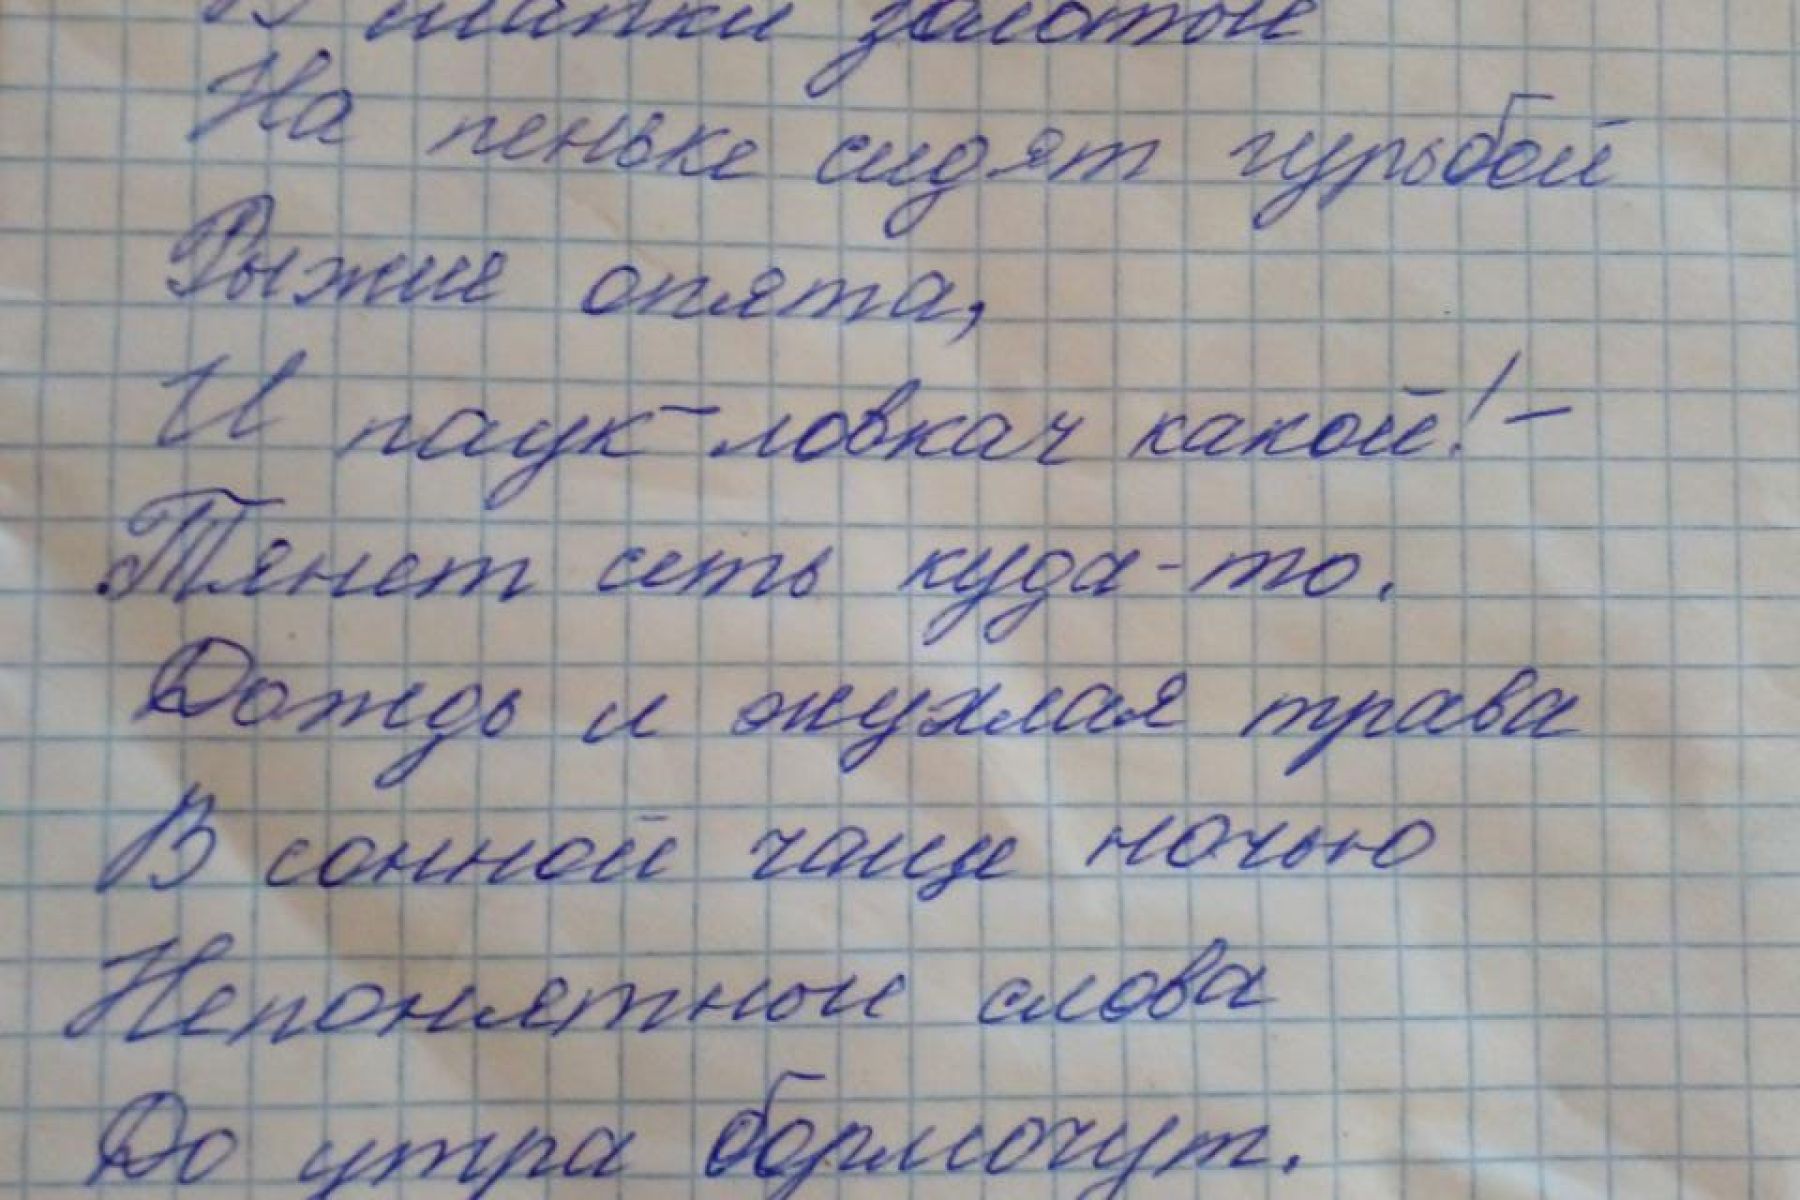 В шапки золотые
На пеньке сидят гурьбой
Рыжие опята,
И паук - ловкач какой! -
Тянет сеть куда-то.
Дождь и жухлая трава
В сонной чаще ночью
Непонятные слова
До утра бормочут.